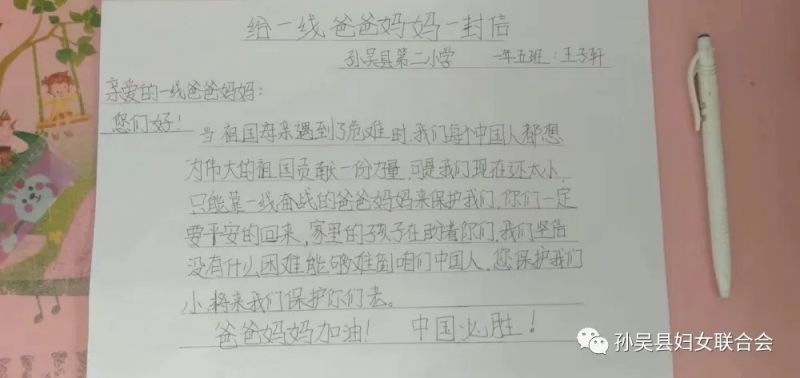 给一线爸爸妈妈一封信
孙吴县第二小学 一年五班:王子轩
亲爱的一线爸爸妈妈:
您们好!
当祖国母亲遇到了危难时,我们每个中国人都想
为伟大的祖国贡献一份力量,可是我们现在还太小,
只能靠一线奋战的爸爸妈妈来保护我们,你们一定
要平安的回来,家里的孩子在盼着你们,我们坚信
没有什么困难能够难倒咱们中国人,您保护我们
小,将来我们保护你们老。
爸爸妈妈加油! 中国必胜!
孙吴县妇女联合会